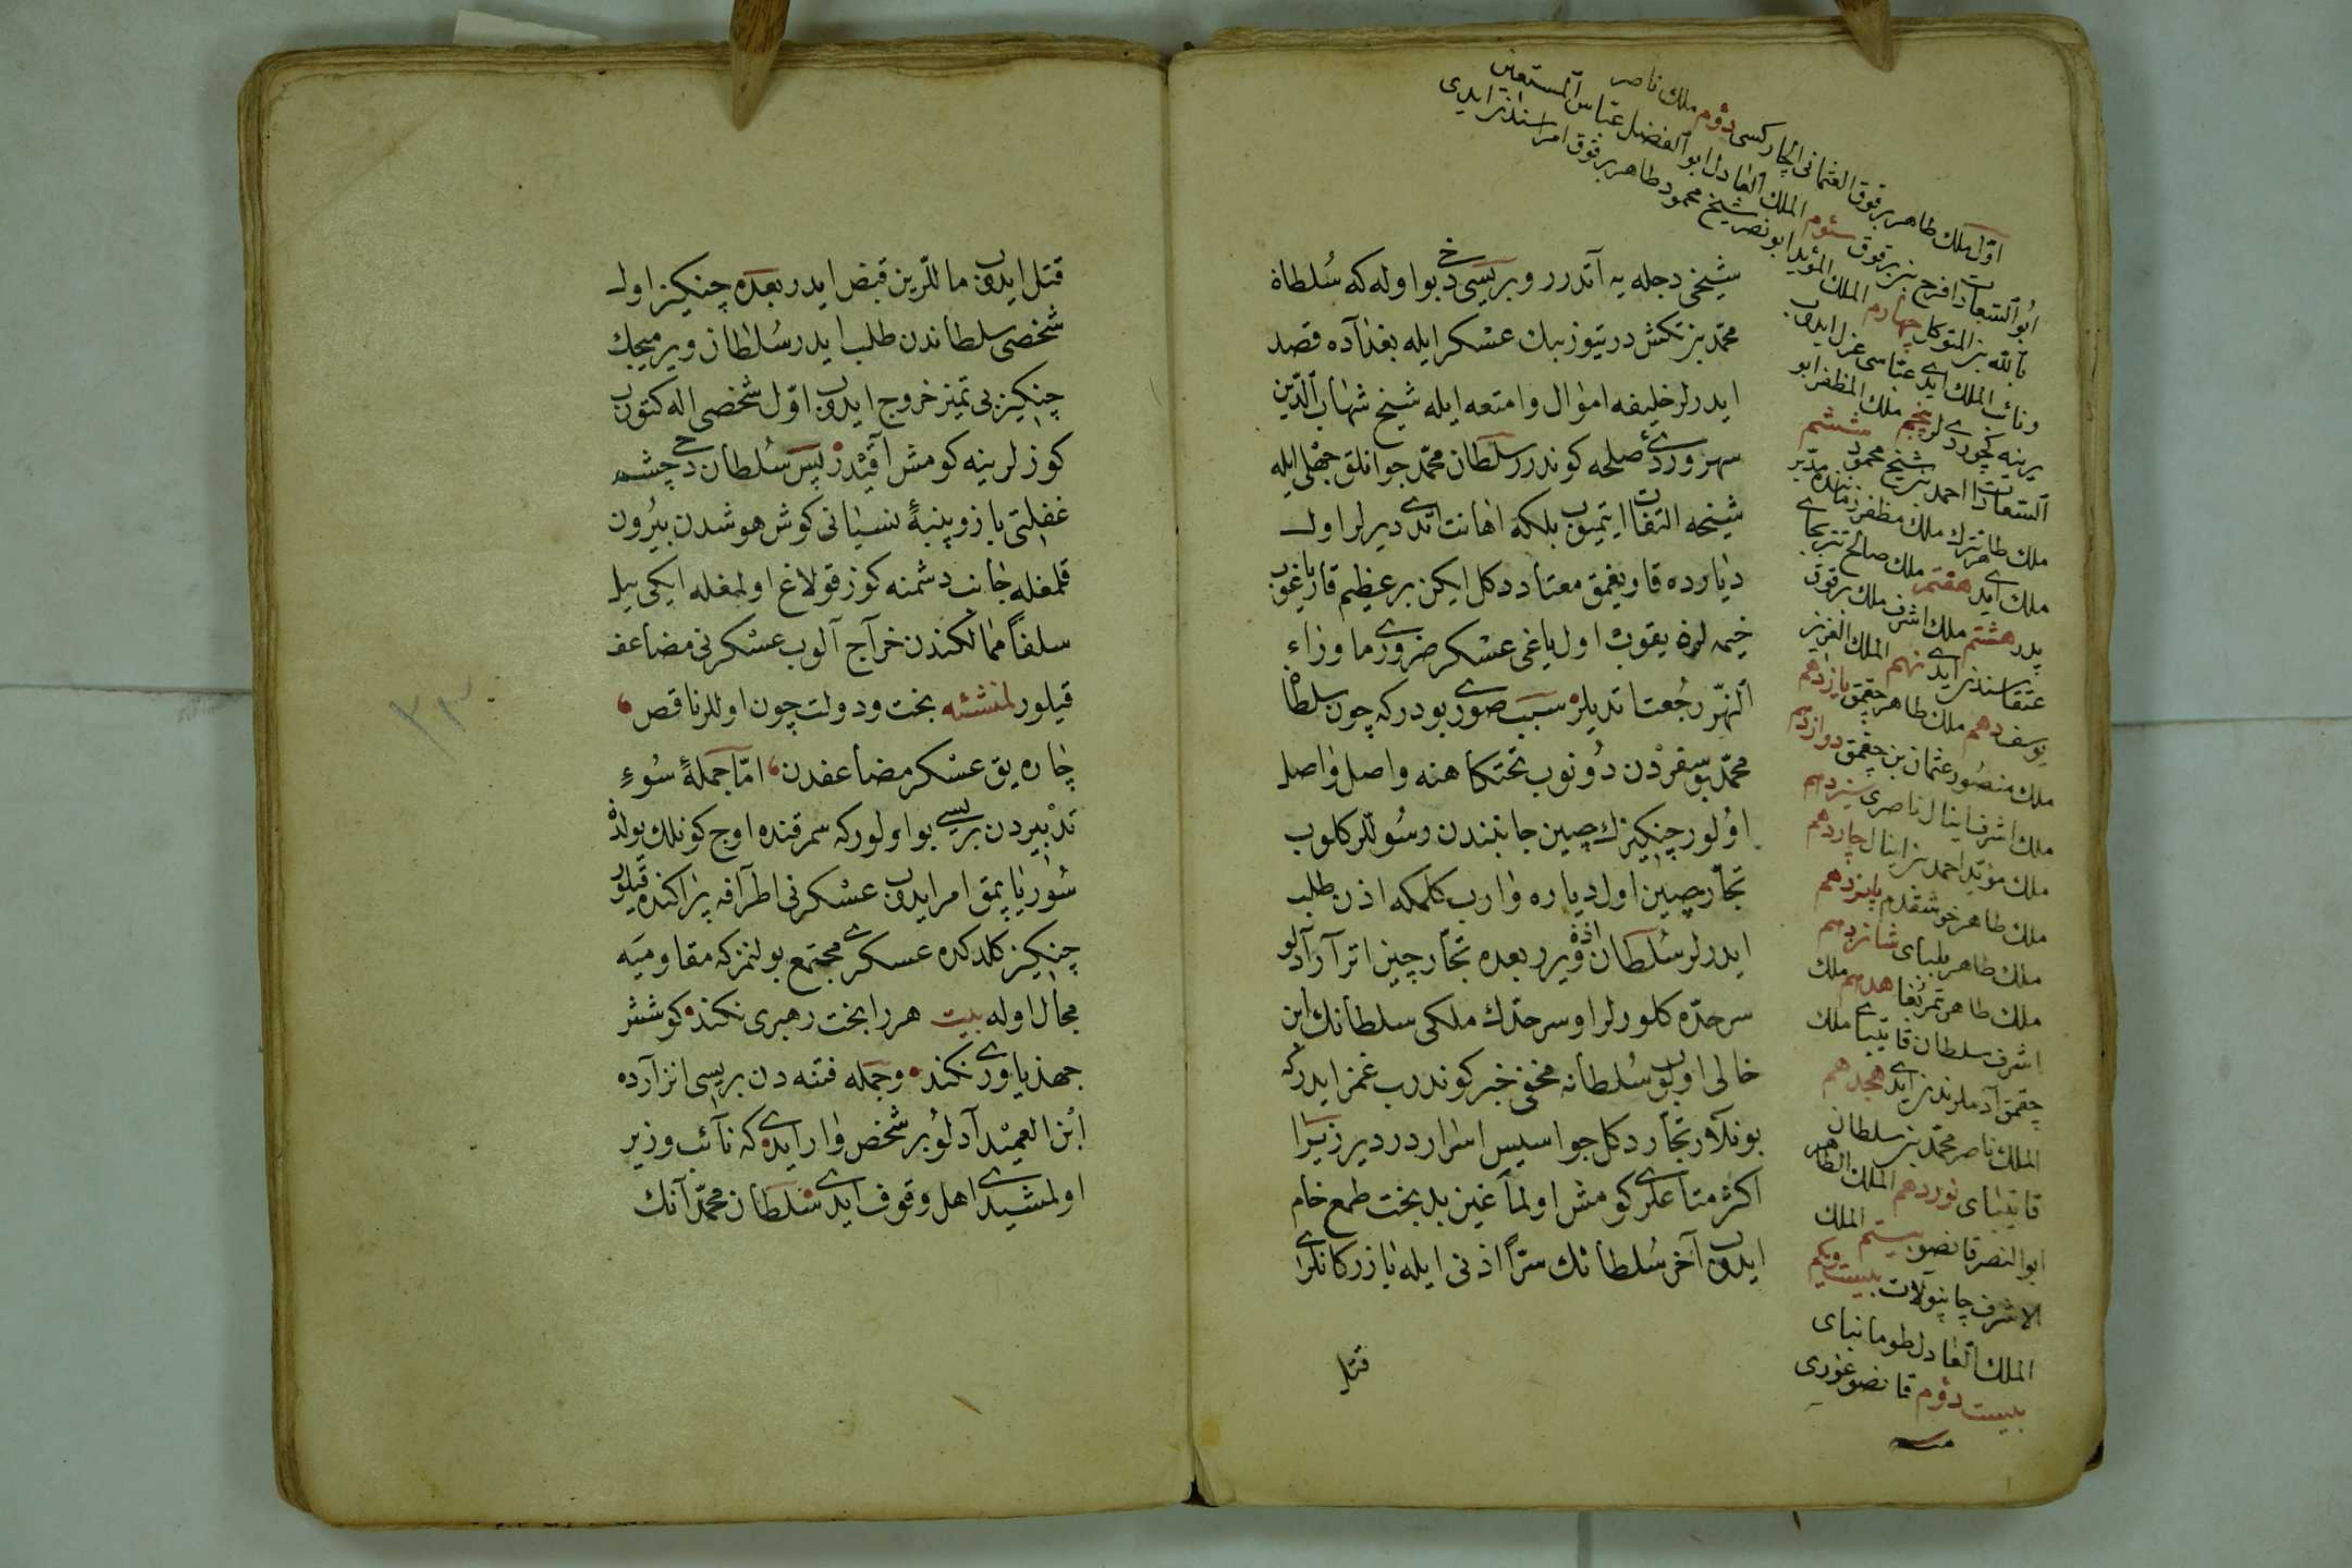 شیخی دجله یه آتدرر و بریسی دخی بو اوله که سُلطان
محمّد بن تکش درتیوز بیك عسکر ایله بغدآده قصد
ایدرلر خلیفه اموال وامتعه ایله شیخ شهاب الدّین
سهروردیٔ صلحه کوندرر سلطان محمّد جوانلق جهلی ایله
شیخه التفات ایتمیوب بلکه اهانت اتدی دیرلر اول
دیارده قار یغمق معتاد دکل ایکن بر عظیم قار یاغوب
خیمه لره یقوب اول یاغی عسکر ضروری ماوراء
النهّر رجُعت اتدیلر سبب صوری بودرکه چون سلطان
محمّد بو سفردن دُونوب تختکاهنه واصل واصل
اوُلور چنکیزك چین جانبندن رسُولّلر کلوب
تجّار چین اول دیاره وارب کلمکه اذن طلب
ایدرلر سُلطان اذن ویرر بعده تجّار چین اترآر آدلو
سرحدّه کلورلر او سرحدّك ملکی سلطانك ابن
خالی اولوب سُلطانه مخفی خبر کوندرب غمز ایدرکه
بونلّار تجّار دکل جواسیس اسراردر دیر زیرا
اکثر متاعلری کومش اولمآغین بدبخت طمع خام
ایدوب آخر سُلطانك سرّاً اذنی ایله بازرکانلری
قتل
اوّل ملك طاهر برقوق العثمانی الچارکسی دوُم ملك ناصر
ابوُ السّعادات فرج بن برقوق سئوم الملك العادل ابو الفضل عبّاس المستعین
بالله بن المتوکل چهارم الملك المؤید ابو نصر شیخ محمود طاهر برقوق امراسندن ایدی
ونائب الملك ایدی عبّاسی عزل ایدوب
یرینه کچوردیلر پنجم ملك المظفر ابو
السّعادات احمد بن شیخ محمود ششم
ملك طاهر ططر ملك مظفر زماننده مدّبر
ملك ایدی هفتم ملك صالح
پدر هشتم ملك اشرف ملك برقوق
عتقاسندن ایدی نهم الملك العزیز
یوسف دهم ملك طاهر چقمق یازدهم
ملك منصُور عثمان بن چقمق دوازدهم
ملك اشرف اینال ناصری سیزدهم
ملك مؤیّد احمد بن اینال چاردهم
ملك طاهر خوشقدم پانزدهم
ملك طاهر بلبای شانزدهم
ملك طاهر تمربُغا هفدهم ملك
اشرف سلطان قایتبای ملك
چقمق آدملرندن ایدی هجدهم
الملك ناصر محمّد بن سلطان
قایتبای نوزدهم الملك الظاهر
ابو النصر قانصو بیستم الملك
الاشرف جانپولات بیست ویکم
الملك العادل طومانبای
بیست دوُم قانصو غوری
قتل ایدوب ماللّرین قبض ایدر بعده چنکیز اول
شخصی سلطاندن طلب ایدر سُلطان ویرمیجك
چنکیز بی تمیز خروج ایدوب اوّل شخصی اله کتوروب
کوزلرینه کومش آقیدر پس سُلطان دخی چشم
غفلتی باز و پنبهٔ نسیانی کوش هوشدن بیرُون
قلمغله جانب دشمنه کوز قولاغ اولمغله ایکی ییل
سلفاً ممالکندن خرآج آلوب عسکرنی مضاعف
قیلور لمنشئه بخت ودولت چون اوللر ناقص
چاره یق عسکر مضاعفدن امّا جملهٔ سُوءِ
تدبیردن بریسی بو اولورکه سمرقنده اوچ کونلك یولده
سُور یاپمق امر ایدوب عسکرنی اطرآفه پراکنده قیلور
چنکیز کلدکده عسکری مجتمع بولنمزکه مقاومته
مجال اوله بیت هررا بخت رهبری نکند کوشش
جهد یاوری نکند وجمله فتنه دن بریسی انزآرده
ابُن العمیْد آدلوُ بر شخص وار ایدی که نآئب وزیر
اولمشیدی اهل وقوف ایدی سُلطان محمّد آنك
٢٣